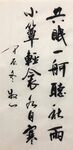 共眠一舸聽秋雨
小簟輕衾各自寒